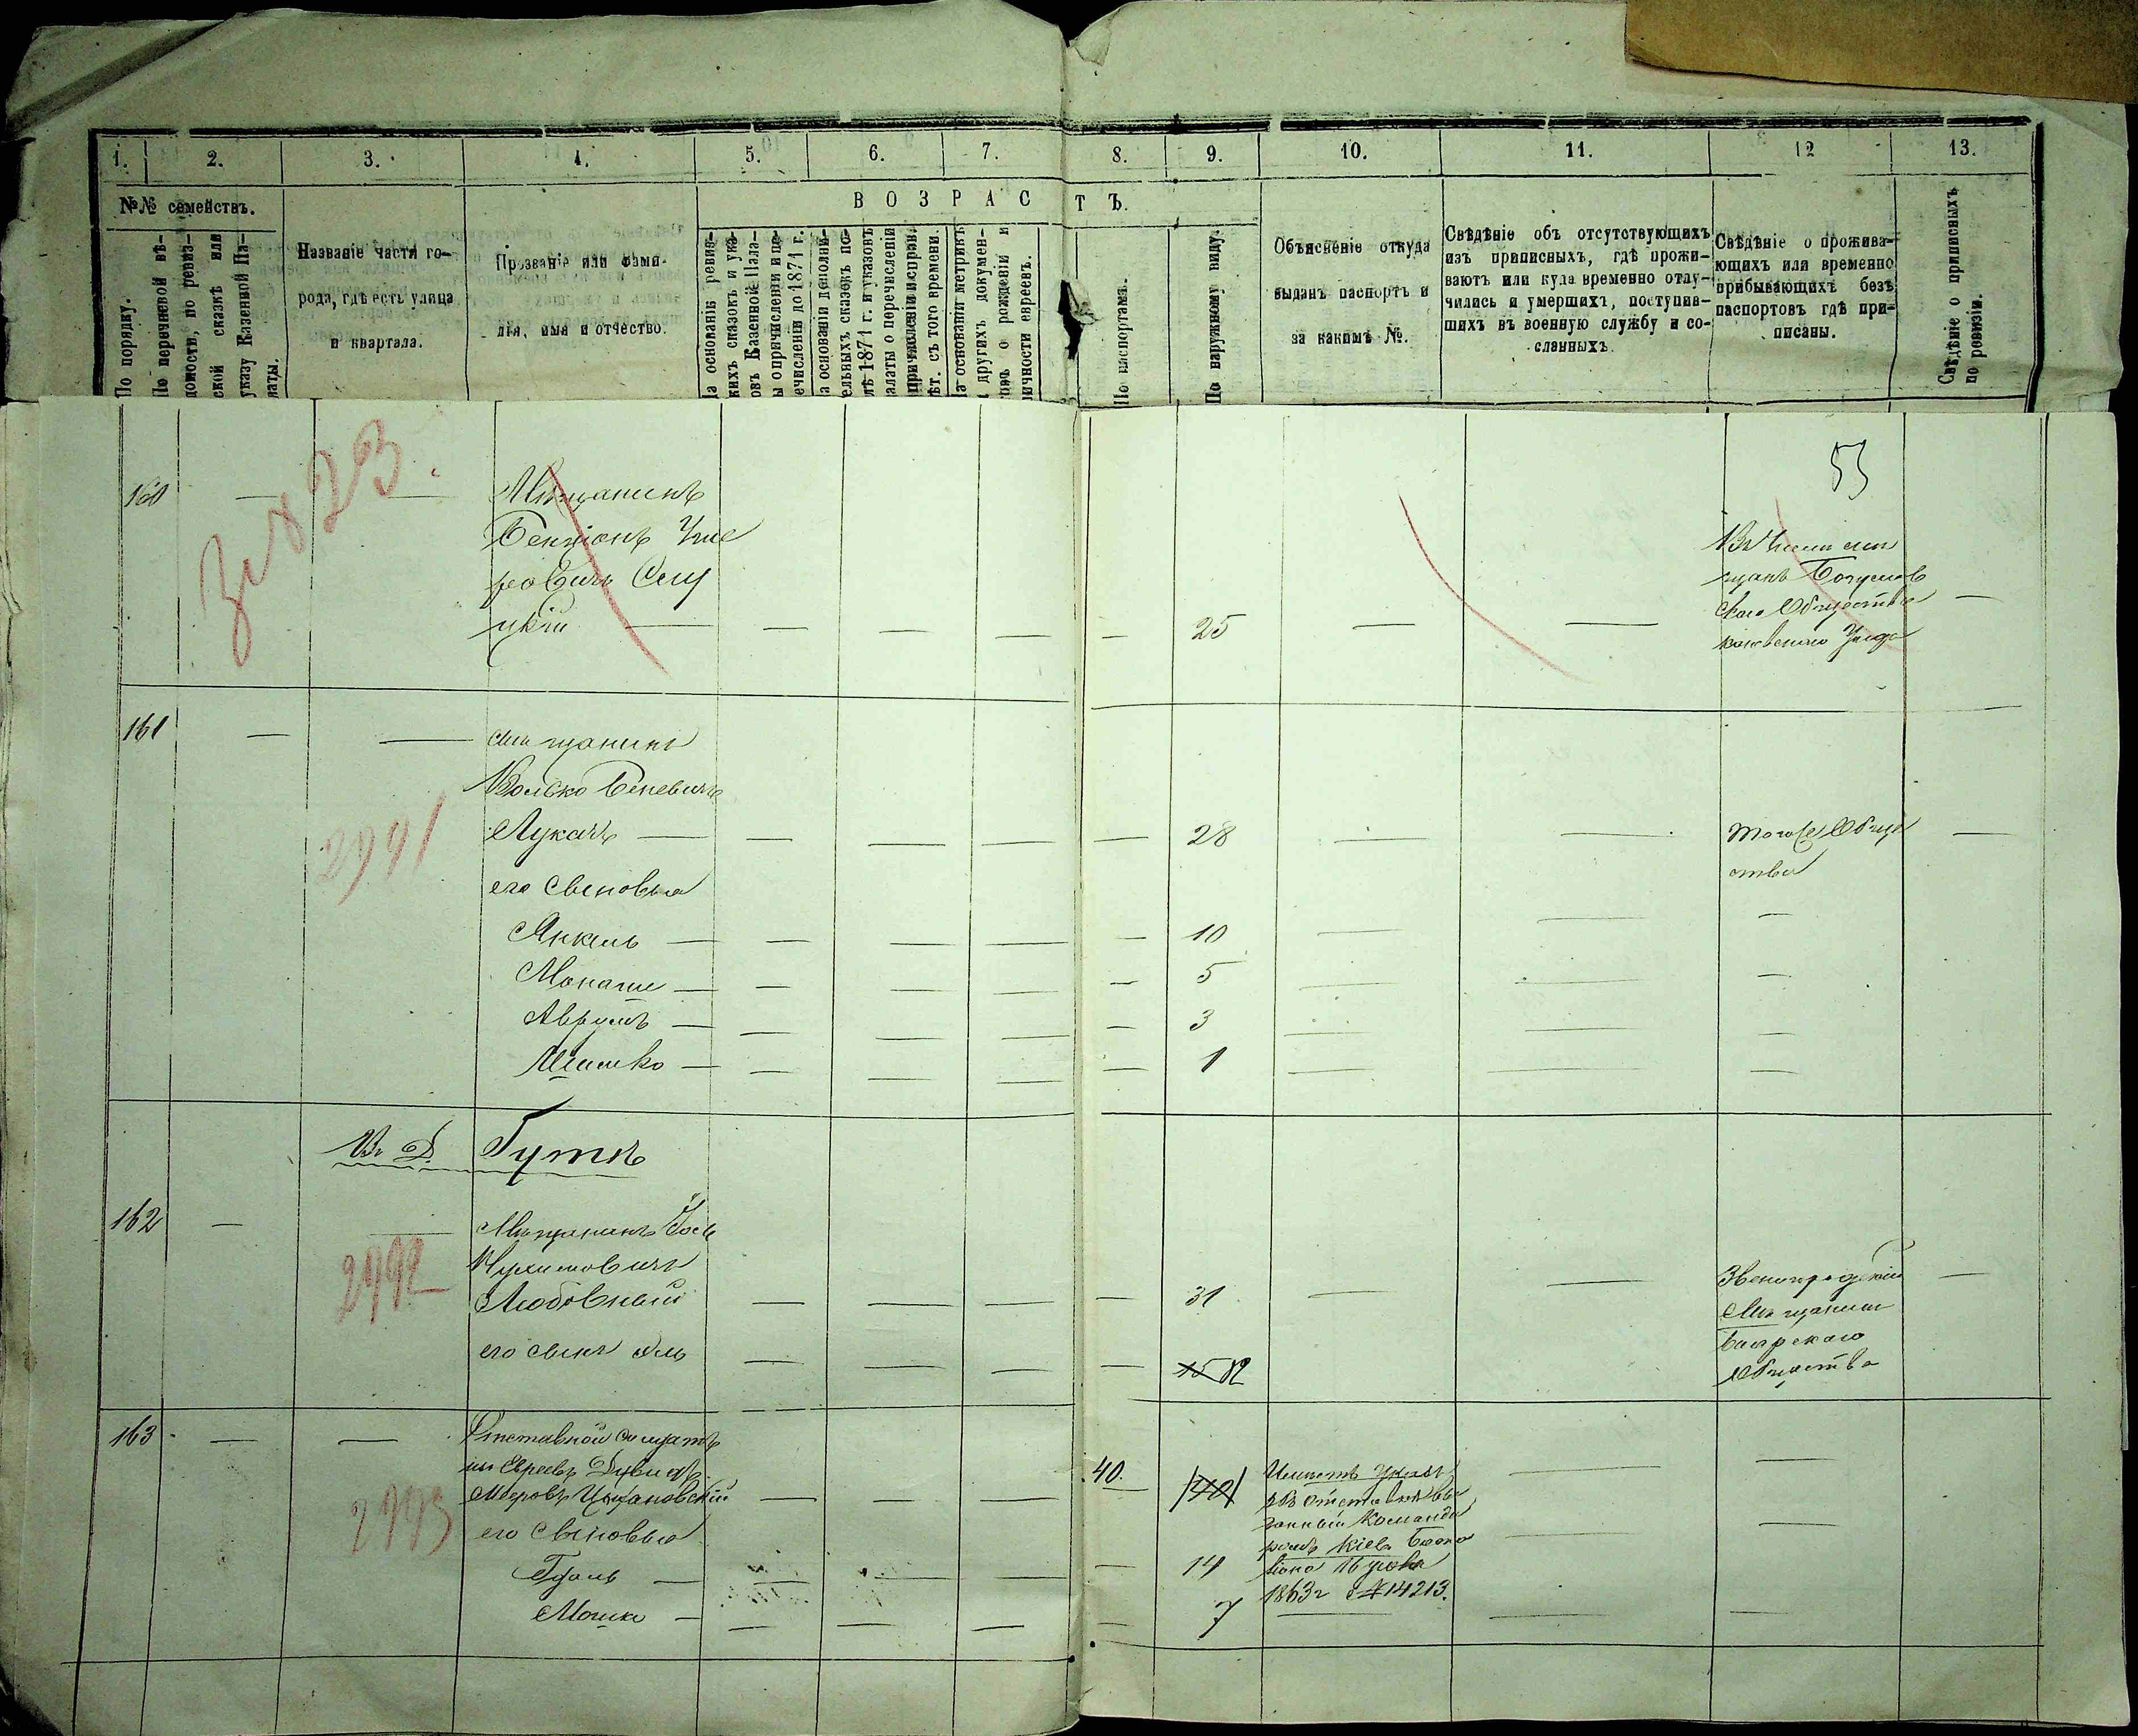 1. 2. 3. 4. 5. 6. 7. 8. 9. 10. 11. 12 13.
№№ семействъ.
По порядку.
По перечневой вѣ-
домости, по ревиз-
ской сказкѣ или
указу Казенной Па-
латы.
Названіе части го-
рода, гдѣ есть улица
и квартала.
Прозваніе или фами-
лія, имя и отчество.
ВОЗРАСТЪ.
На основаніи ревиз-
скихъ сказокъ и ука-
зовъ Казенной Пала-
ты о причисленіи и пе-
речисленіи до 1871 г.
На основаніи дополни-
тельныхъ сказокъ по-
слѣ 1871 г. и указовъ
Палаты о перечисленіи
причисленіи и исправ.
лѣт. съ того времени.
На основаніи метрикъ
и другихъ докумен-
товъ о рожденіи и
личности евреевъ.
По паспортамъ.
По наружному виду.
Объясненіе откуда
выданъ паспортъ и
за какимъ №.
Свѣдѣніе объ отсутствующихъ
изъ приписныхъ, гдѣ прожи-
ваютъ или куда временно отлу-
чились и умершихъ, поступив-
шихъ въ военную службу и со-
сланныхъ.
Свѣдѣніе о прожива-
ющихъ или временно
прибывающихъ безъ
паспортовъ гдѣ при-
писаны.
Свѣдѣніе о приписныхъ
по ревизіи.
53
160 — — Мѣщанинъ
Бенціонъ
ровичъ Слу
цкій — — — — — 25 — —
Общества
Каневскаго Уѣзда —
161 — — мѣщанинъ
Волько Беневичъ
Лукачъ — — — — — 28 — — тогоже Обще
ства —
2991
его сыновья
Янкель — — — — — 10 — — —
Монаше — — — — — 5 — — —
Аврумъ — — — — — 3 — — —
Шимко — — — — — 1 — — —
Въ Д. Гутѣ
162 — — Мѣщанинъ Йось
Нухимовичъ
Любовный — — — — — 31 — — Звенигородскій
Мѣщанинъ
Боярскаго
Общества —
2992
его сынъ — — — — 12
163 — — Отставной солдатъ
изъ Евреевъ Дувидъ
Меровъ — — — 40.
2993
его сыновья
— — — — — 14 — —
Мошко — — — — — 7 — — —
Имѣетъ Указъ
объ отставкѣ вы
данный Команди
ромъ Кіев. Бата
ліона
1863 г №14213.